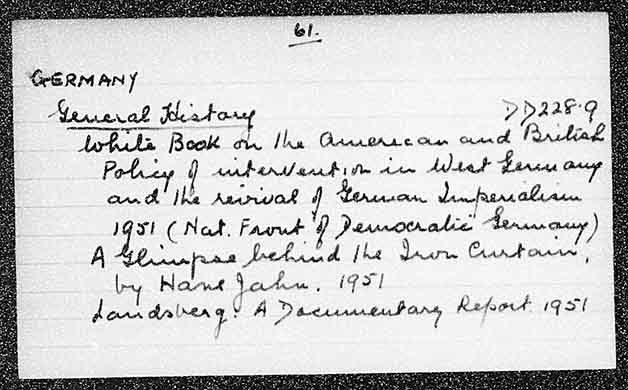 61.
GERMANY
General History DD228.9
White Book on the American and British
Policy of intervention in West Germany
and the revival of German Imperialism
1951 (Nat. Front of Democratic Germany)
A Glimpse behind the Iron Curtain,
by Hans Jahn. 1951
Landsberg. A Documentary Report 1951